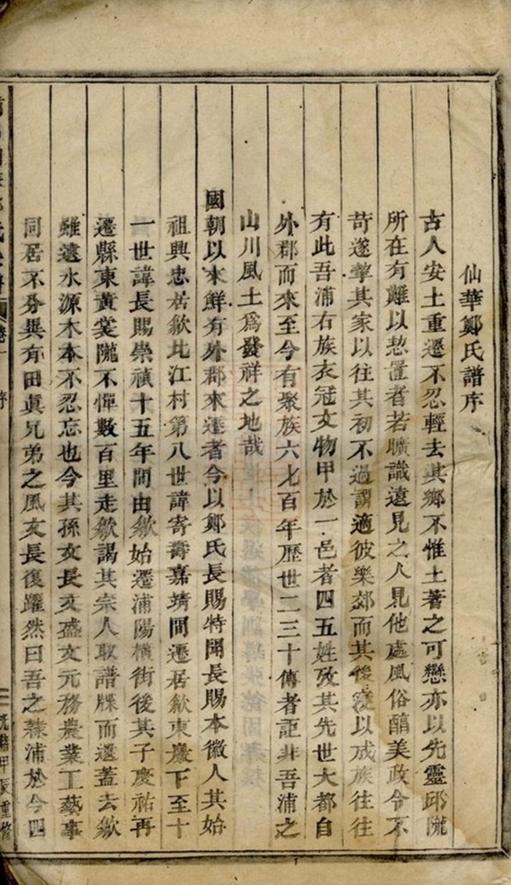 仙華鄭氏譜序
古人安土重遷不忍輕去其鄉不惟土著之可戀亦以先靈邱隴
所在有難以恝置者若曠識遠見之人見他處風俗醕美政令不
苛遂挈其家以往其初不過謂適彼樂郊而其後遂以成族往往
有此吾浦右族衣冠文物甲於一邑者四五姓攷其先世大都自
外郡而來至今有聚族六七百年歷世二三十傳者詎非吾浦之
山川風土爲發祥之地哉
國朝以來鮮有外郡來遷者今以鄭氏長賜特聞長賜本微人其始
祖興忠居歙北江村第八世諱寄壽嘉靖間遷居歙東巖下至十
一世諱長賜崇禎十五年間由歙始遷浦陽橫街後其子慶祐再
遷縣東黃棠隴不憚數百里走歙謁其宗人取譜牒而還蓋去歙
雖遠水源木本不忍忘也今其孫文長文盛文元務農業工藝事
同居不分爨有田眞兄弟之風文長復躍然曰吾之隸浦於今四
序
光緒甲辰重修